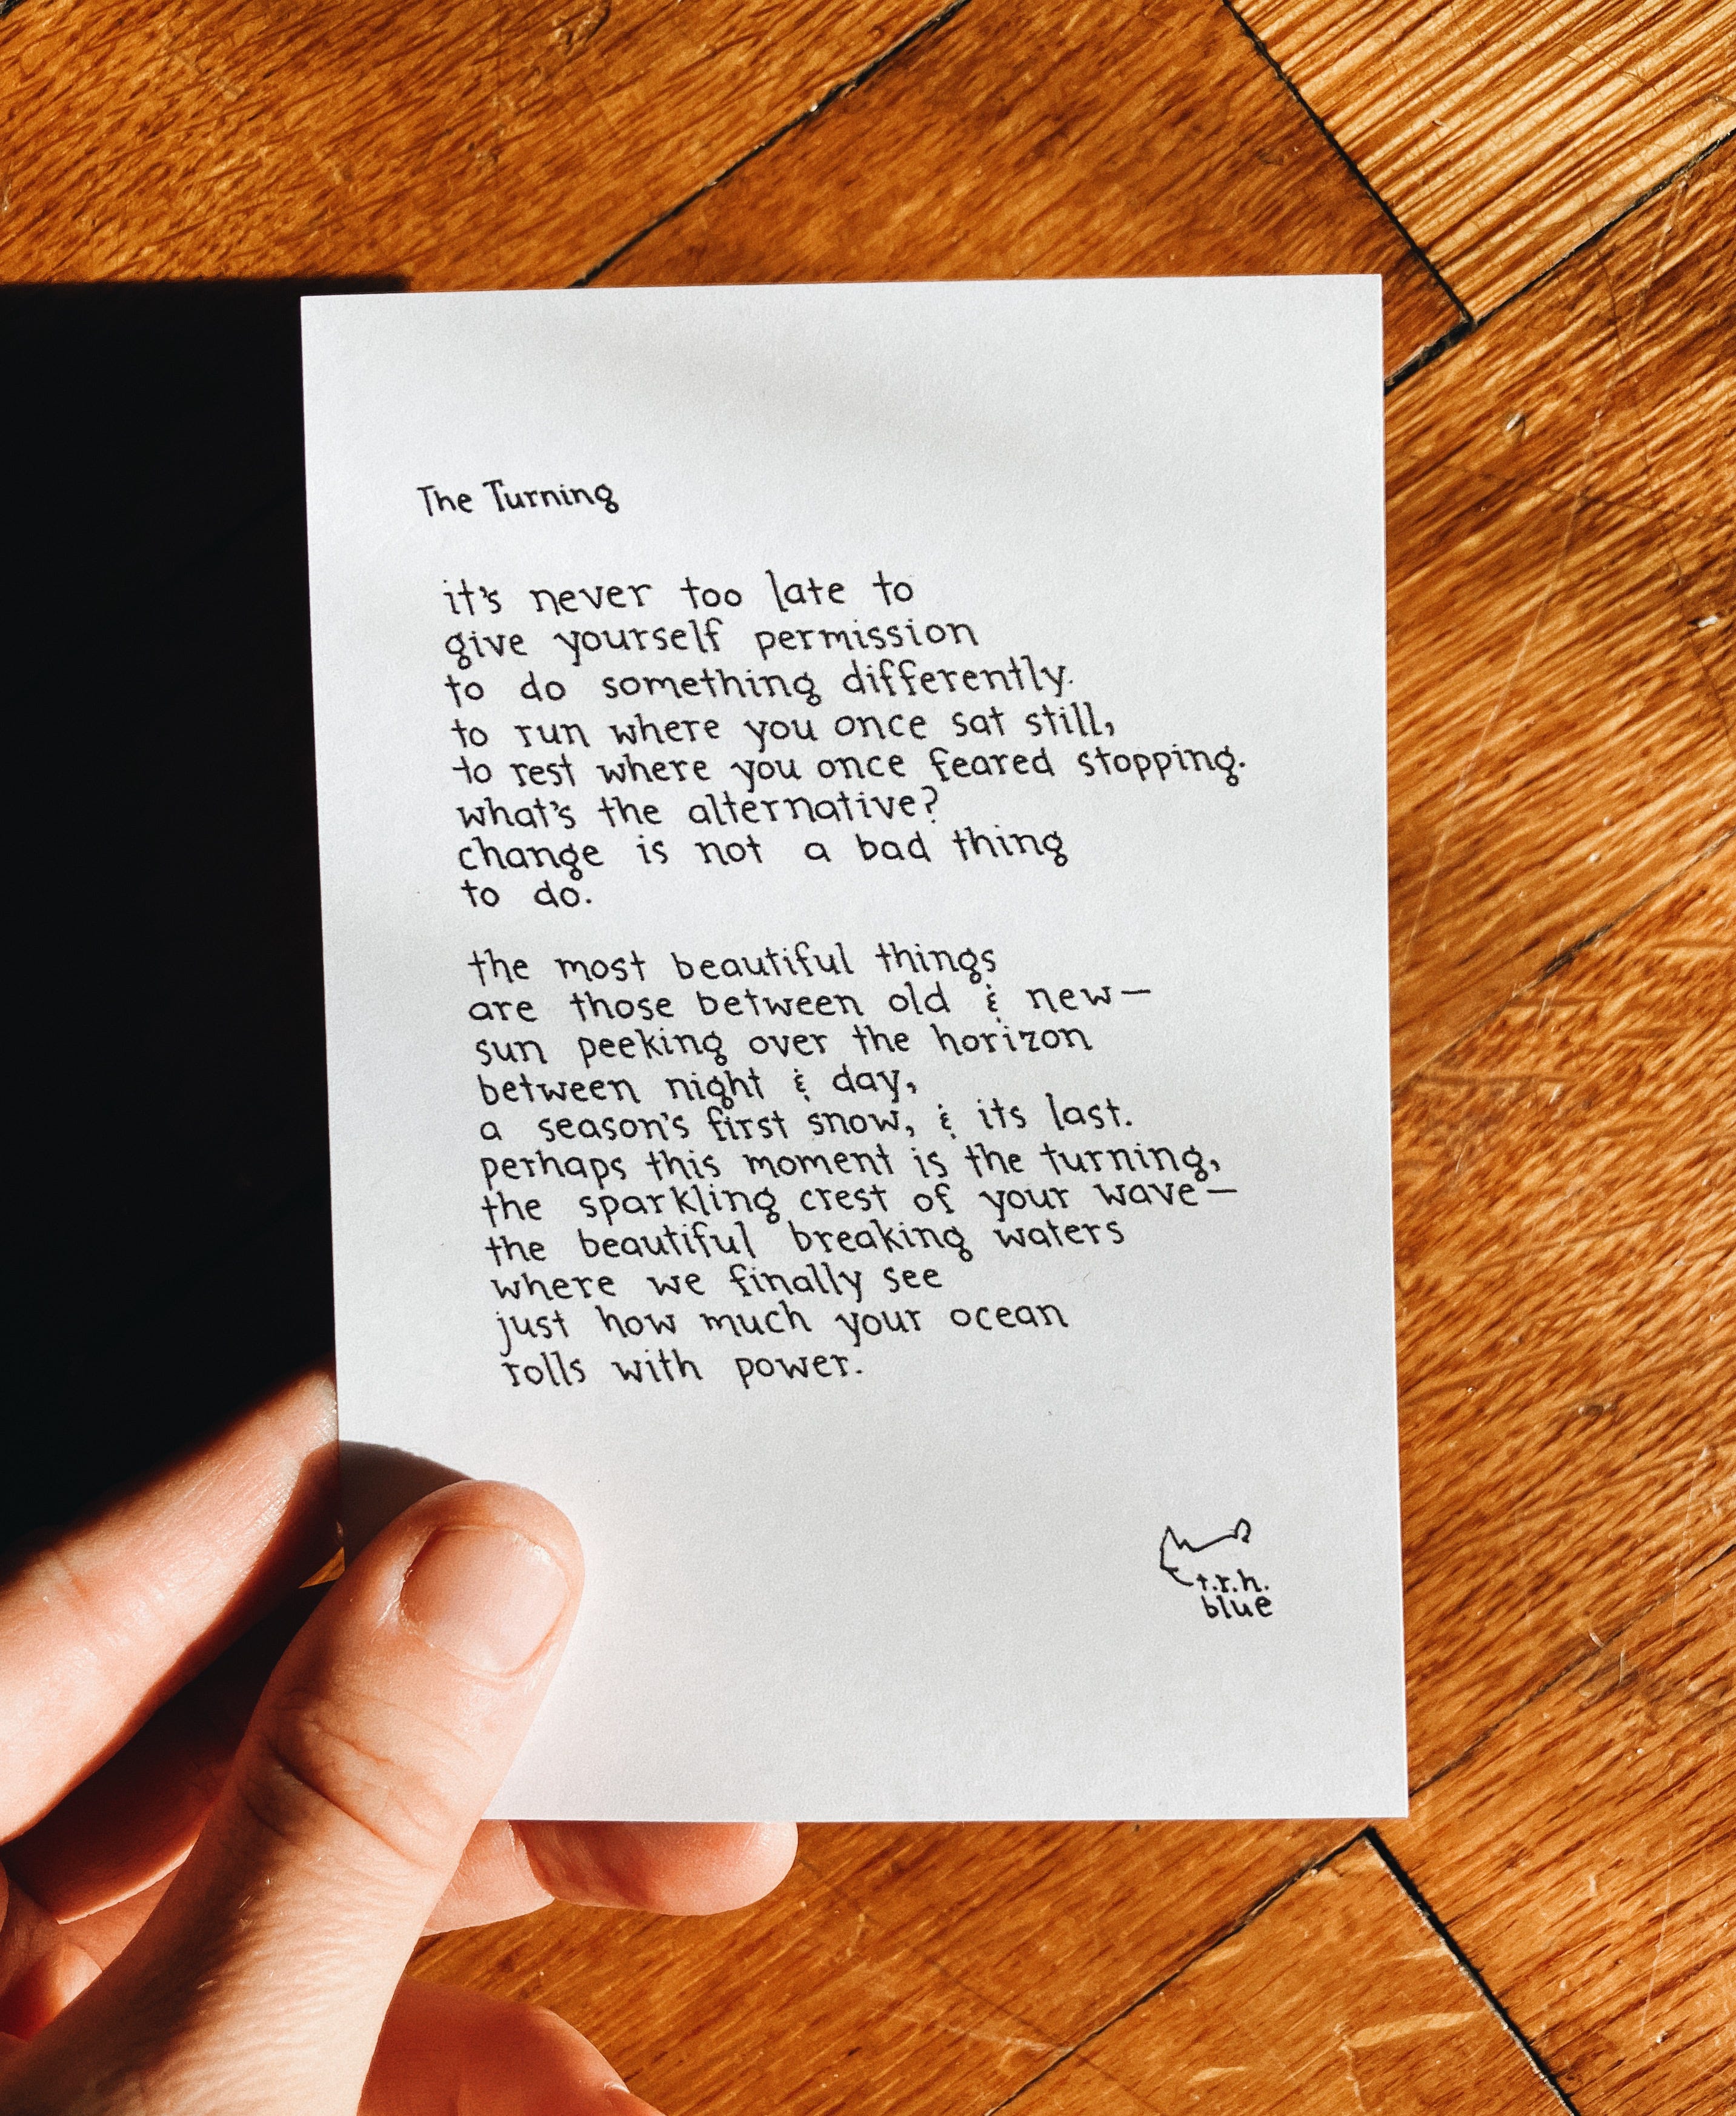 The Turning
it's never too late to
give yourself permission
to do something differently.
to run where you once sat still,
to rest where you once feared stopping.
what's the alternative?
change is not a bad thing
to do.
the most beautiful things
are those between old & new—
sun peeking over the horizon
between night & day,
a season's first snow, & its last.
perhaps this moment is the turning,
the sparkling crest of your wave—
the beautiful breaking waters
where we finally see
just how much your ocean
rolls with power.
t.r.h.
blue